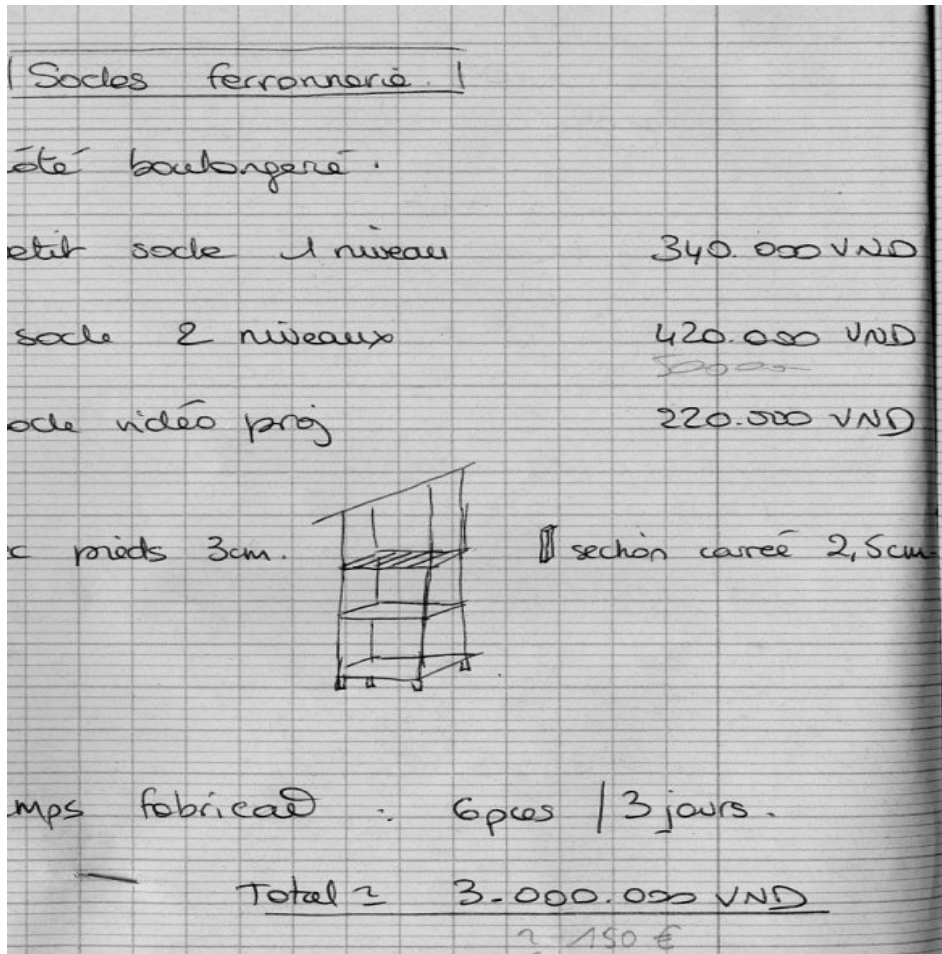 Socles ferronnerie.
ôté boulangerie.
etit socle 1 niveau 340.000 VND
socle 2 niveaux 420.000 VND
ocle vidéo proj 220.000 VND
c pieds 3cm. section carrée 2,5cm
mps fabricat : 6pces / 3 jours.
Total ≃ 3.000.000 VND
≃ 150 €